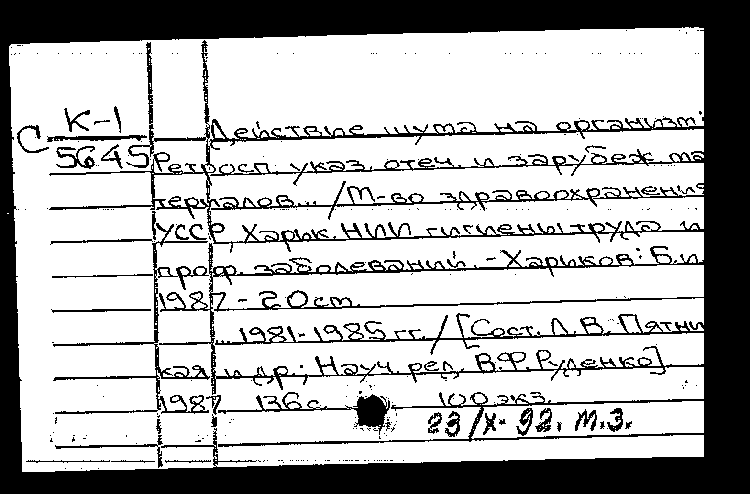 С К-1
5645
Действие шума на организм:
Ретросп. указ. отеч. и зарубеж. ма
териалов... /М-во здравоохранения
УССР, Харьк. НИИ гигиены труда и
проф. заболеваний. - Харьков: Б.и.
1987 - 20 cm.
... 1981-1985 гг. / [Сост. Л.В. Пятни
кая и др.; Науч. ред. В.Ф. Руденко].
1987 136 с. 100 экз.
23/X- 92. М.З.